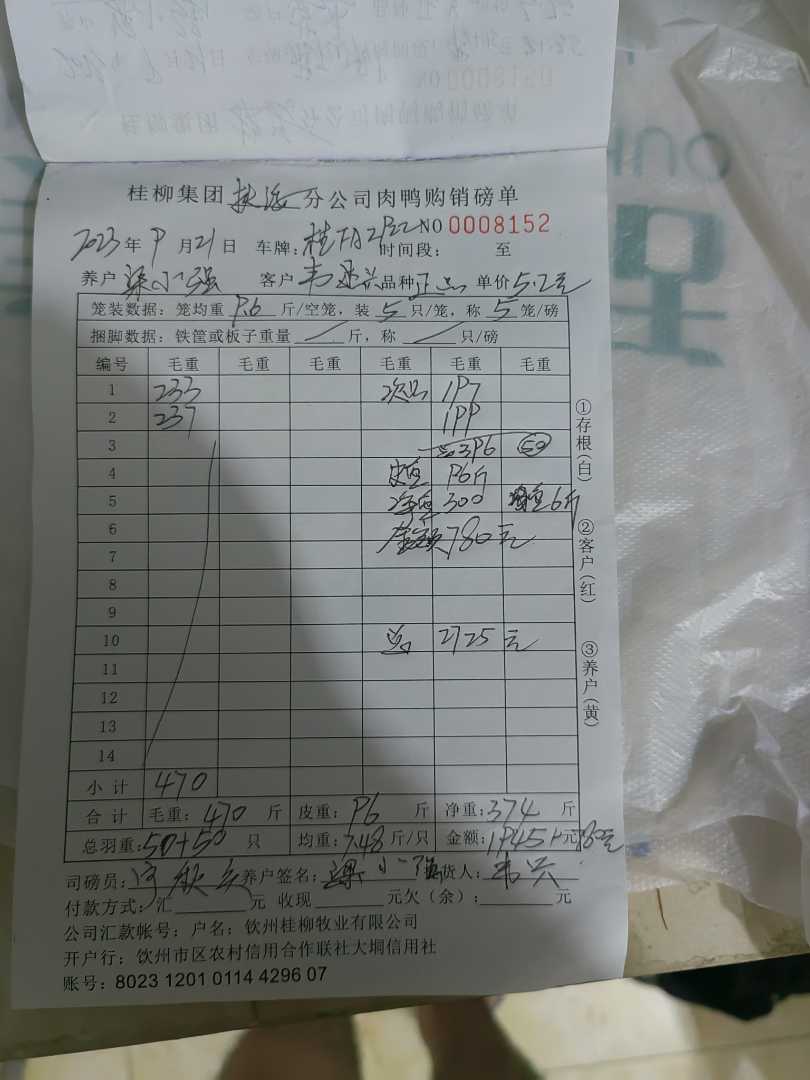 桂柳集团 分公司肉鸭购销磅单
2023年9月21日 车牌: NO 0008152
时间段: 至
养户 梁小强 客户 韦 兴 品种 正品 单价 5.2元
笼装数据: 笼均重 9.6 斤/空笼, 装 5 只/笼, 称 5 笼/磅
捆脚数据: 铁筐或板子重量 / 斤, 称 / 只/磅
编号 毛重 毛重 毛重 毛重 毛重 毛重
1 233 次品 197
2 237 199
3 396 50
4 皮重 96斤
5 净重 300 均重6斤
6 金额 780元
7
8
9
10 总 2725元
11
12
13
14
小计 470
合计 毛重: 470 斤 皮重: 96 斤 净重: 374 斤
总羽重: 50+50 只 均重: 7.48 斤/只 金额: 1945 元
司磅员: 养户签名: 梁小强 货人: 韦兴
付款方式: 汇 元 收现 元欠(余): 元
公司汇款帐号: 户名: 钦州桂柳牧业有限公司
开户行: 钦州市区农村信用合作联社大垌信用社
账号: 8023 1201 0114 4296 07
①存根(白)
②客户(红)
③养户(黄)